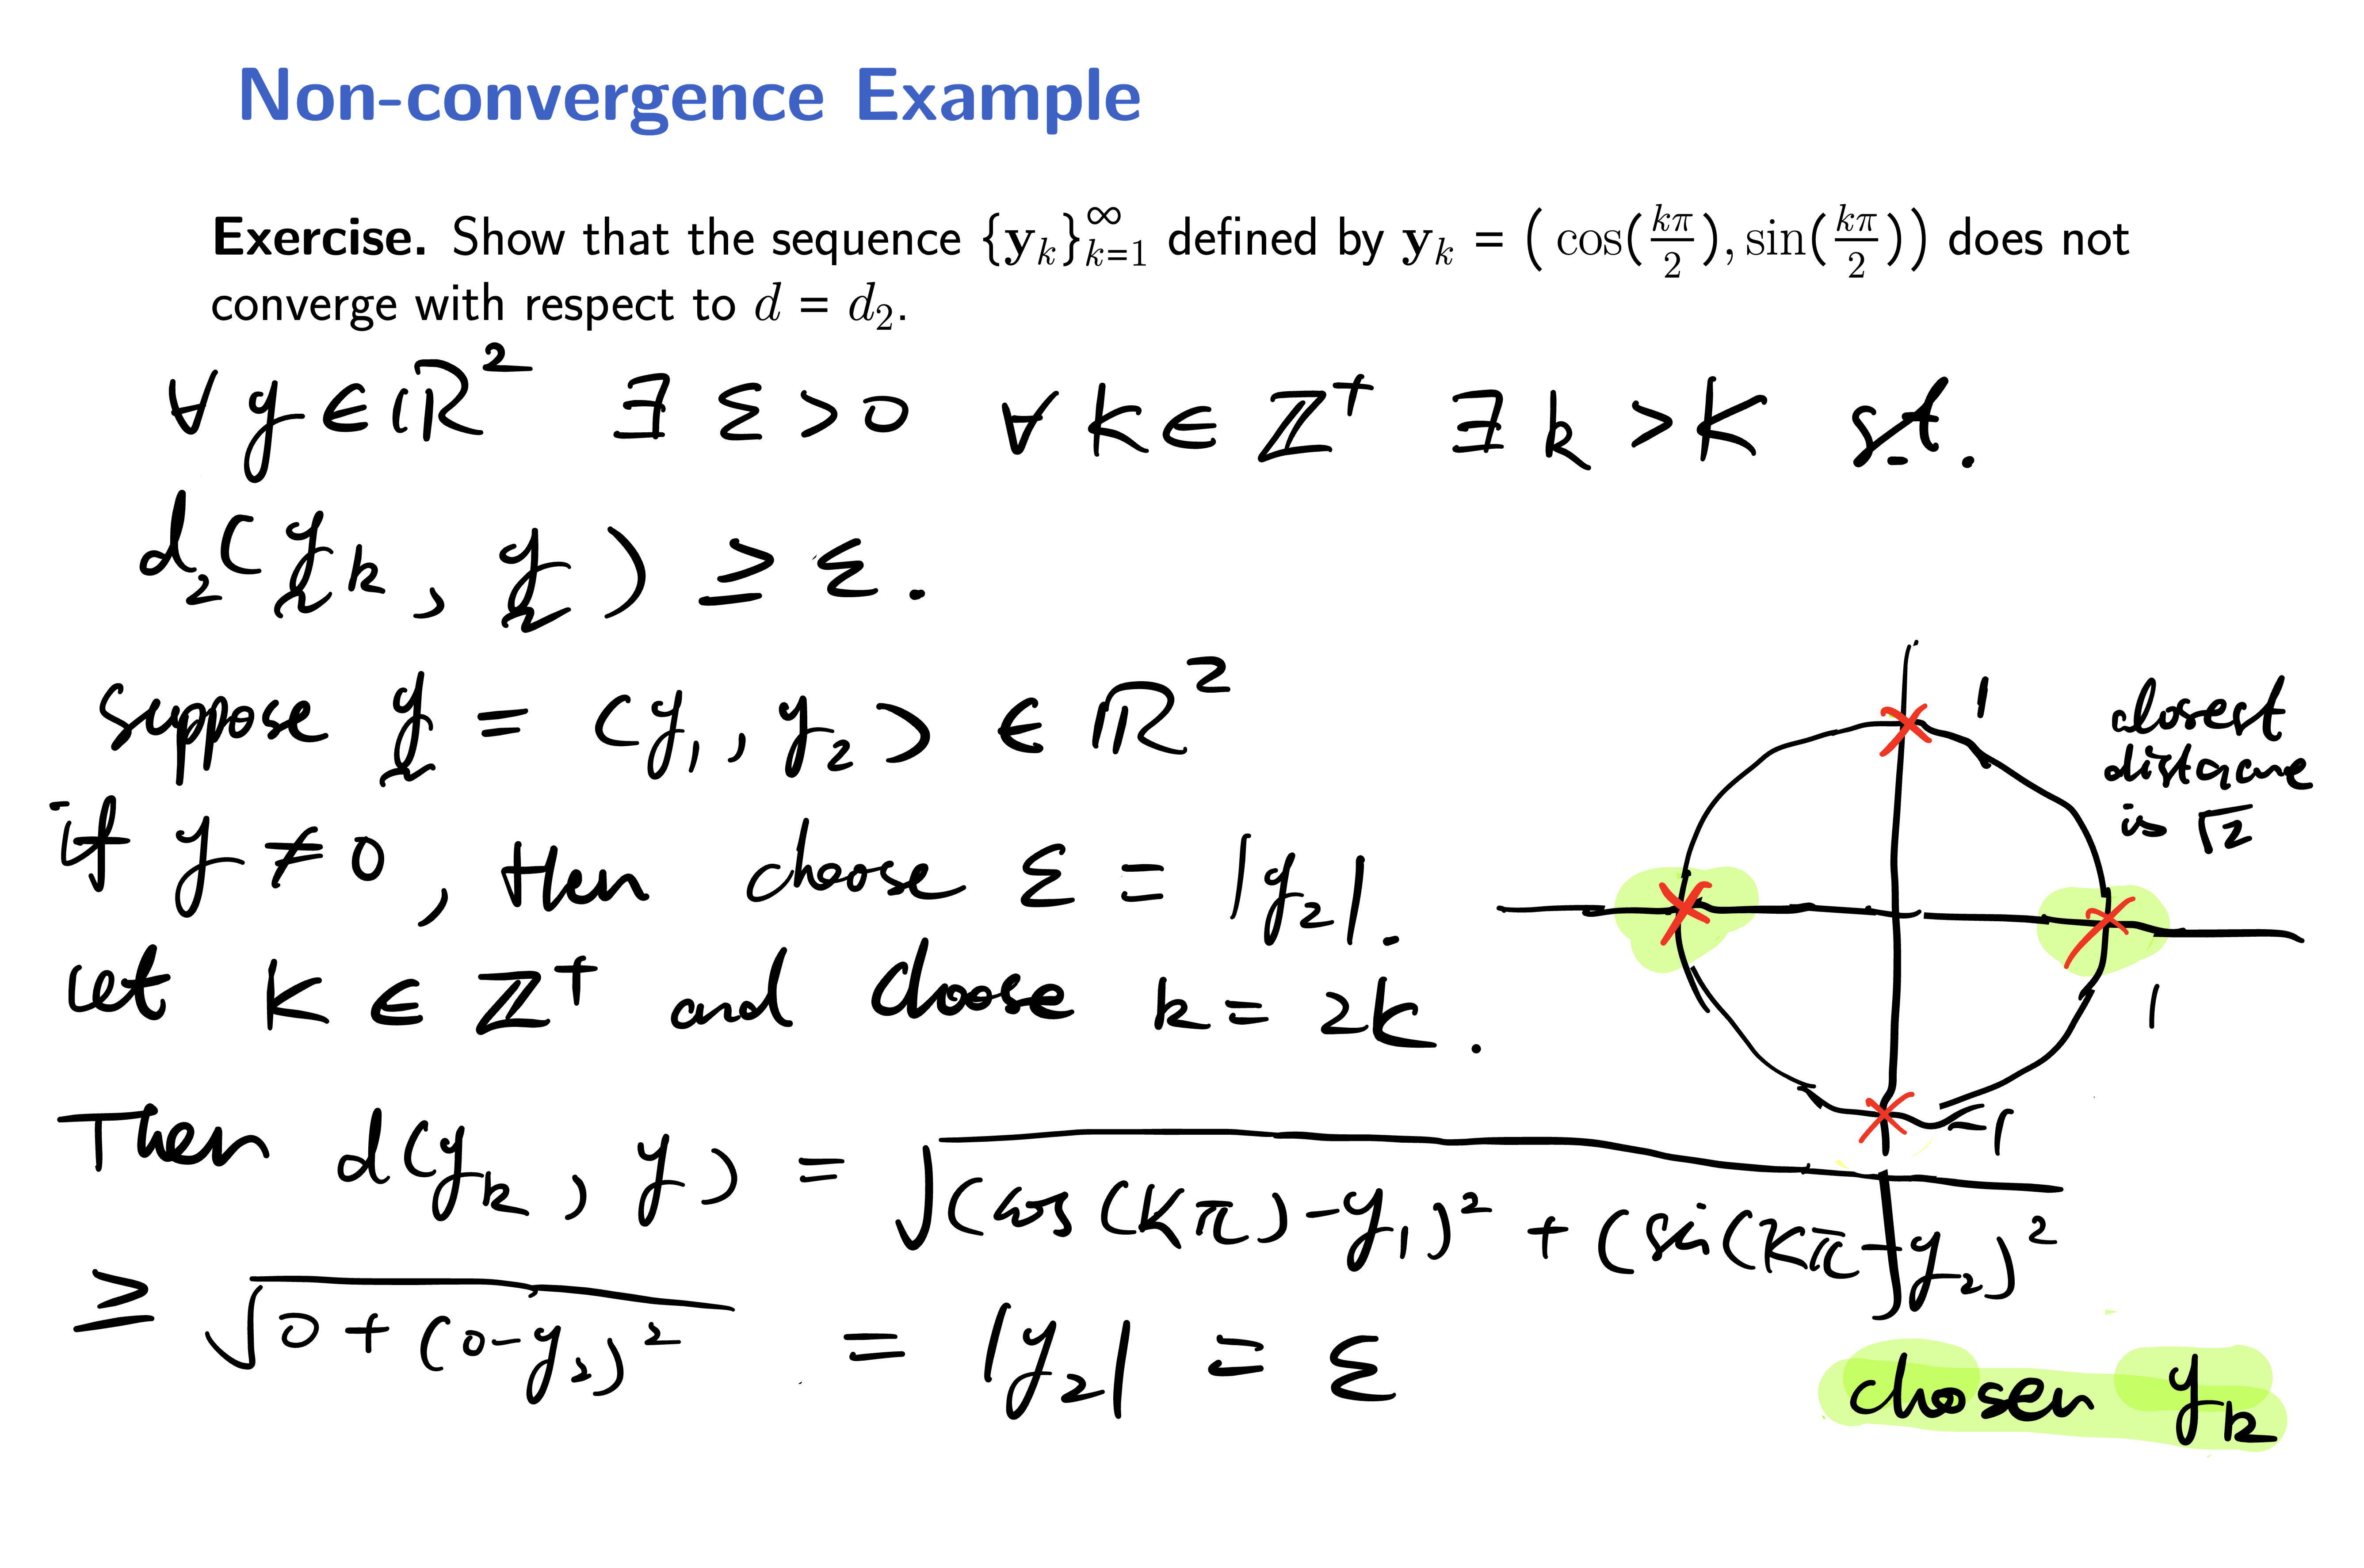 Non-convergence Example
Exercise. Show that the sequence {y_k}_{k=1}^∞ defined by y_k = (cos(kπ/2), sin(kπ/2)) does not
converge with respect to d = d₂.
∀ y ∈ ℝ² ∃ ε > 0 ∀ K ∈ ℤ⁺ ∃ k > K st.
d₂(y_k, y) ≥ ε.
suppose y = (y₁, y₂) ∈ ℝ²
if y ≠ 0, then choose ε = |y₂|.
let K ∈ ℤ⁺ and choose k = 2K.
Then d(y_k, y) = √((cos(Kπ) - y₁)² + (sin(Kπ - y₂)²
≥ √(0 + (0 - y₂)²) = |y₂| = ε
1
closest
distance
is √2
1
-1
chosen y_k